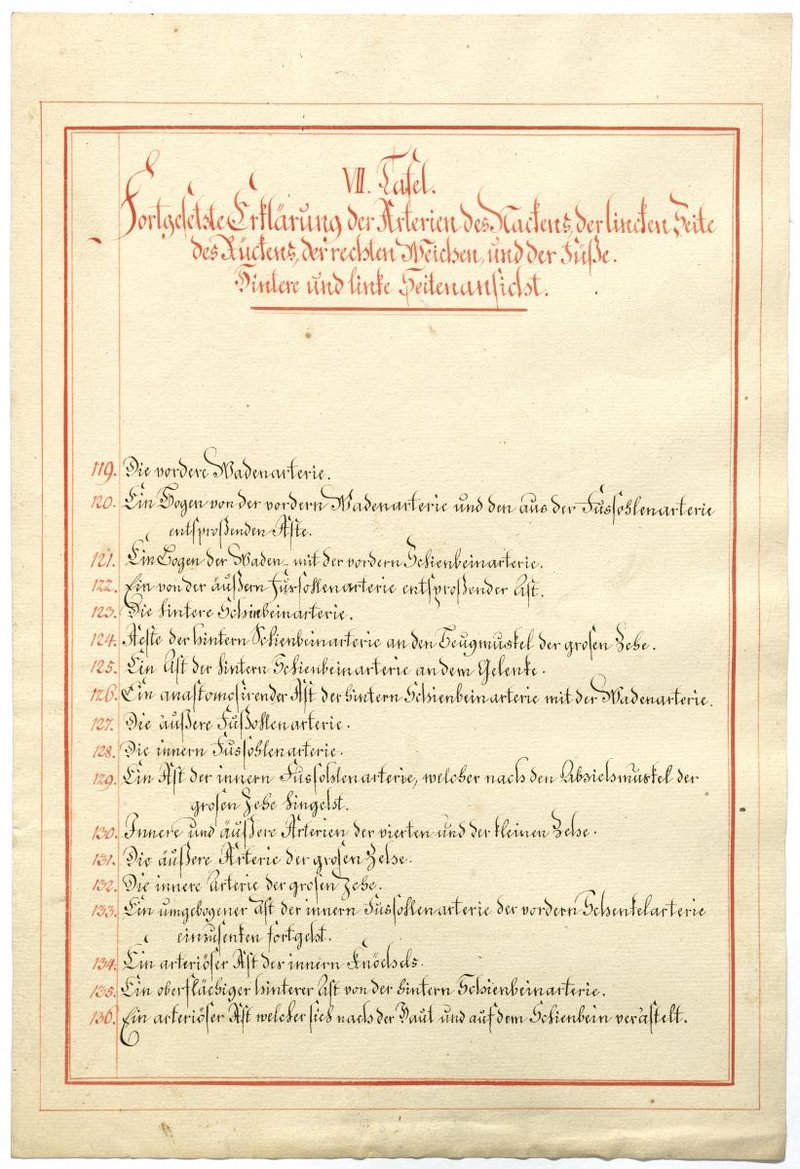 VII. Tafel.
Fortgesetzte Erklärung der Arterien des Nackens, der lincken Seite
des Rückens, der rechten Weichen, und der Füße.
Hintere und linke Seitenansicht.
119. Die vordere Wadenarterie.
120. Ein Bogen von der vordern Wadenarterie und den aus der Fussohlenarterie
entsproßenden Äste.
121. Ein Bogen der Waden- mit der vordern Schienbeinarterie.
122. Ein von der äußern Fussohlenarterie entsproßender Ast.
123. Die hintere Schienbeinarterie.
124. Aeste der hintern Schienbeinarterie an den Beugmuskel der grosen Zehe.
125. Ein Ast der hintern Schienbeinarterie an dem Gelenke.
126. Ein anastomosirender Ast der hintern Schienbeinarterie mit der Wadenarterie.
127. Die äußere Fußohlenarterie.
128. Die innern Fussohlenarterie.
129. Ein Ast der innern Fussohlenarterie, welcher nach den Abziehmuskel der
grosen Zehe hingeht.
130. Innere und äußere Arterien der vierten und der kleinen Zehe.
131. Die äußere Arterie der grosen Zehe.
132. Die innere Arterie der grosen Zehe.
133. Ein umgebogener Ast der innern Fussohlenarterie der vordern Schenkelarterie
einzusenken fortgeht.
134. Ein arteriöser Ast des innern Knöchels.
135. Ein oberflächiger hinterer Ast von der hintern Schienbeinarterie.
136. Ein arteriöser Ast welcher sich nach der Haut und auf dem Schienbein verästelt.